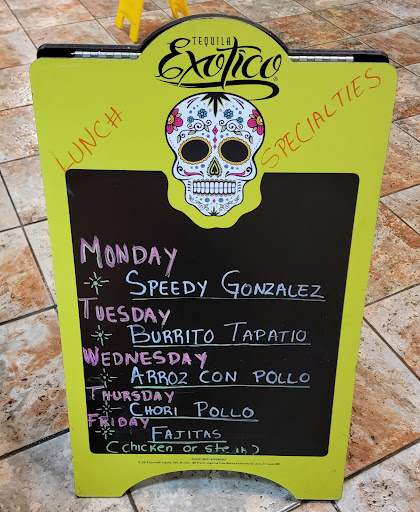 TEQUILA
Exotico
LUNCH
SPECIALTIES
MONDAY
SPEEDY GONZALEZ
TUESDAY
BURRITO TAPATIO
WEDNESDAY
ARROZ CON POLLO
THURSDAY
CHORI POLLO
FRIDAY
FAJITAS
(chicken or steak)